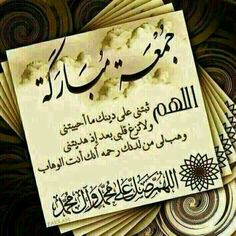 جمعة مباركة
اللهم
ثبتني على دينك ما أحييتني
ولا تزغ قلبي بعد إذ هديتني
وهب لي من لدنك رحمه أنك أنت الوهاب
اللهم صل على محمد وآل محمد